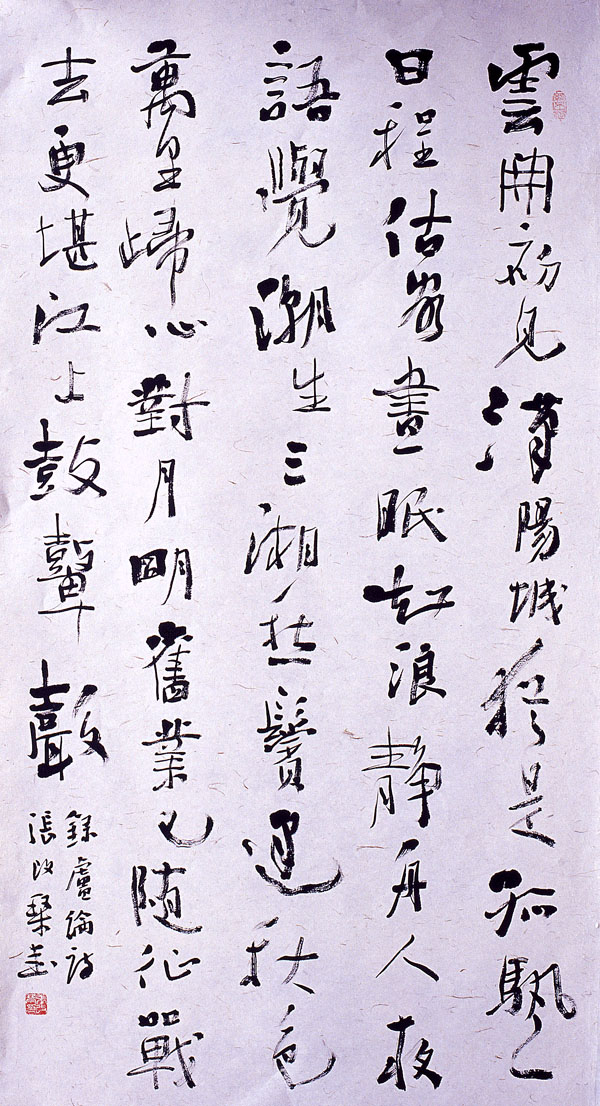 雲開初見漢陽城猶是孤颿一
日程估客晝眠知浪靜舟人夜
語覺潮生三湘愁鬢遇秋色
萬里歸心對月明舊業已隨征戰
去更堪江上鼓鼙聲
錄盧綸詩
張改琴書